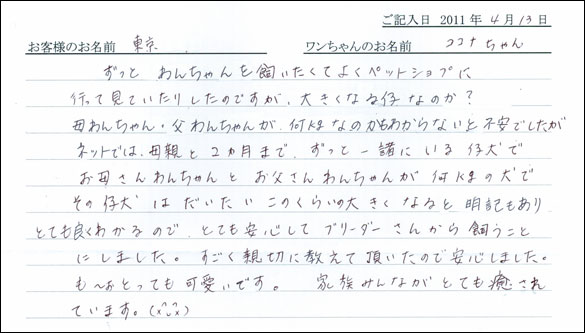 ご記入日 2011年4月13日
お客様のお名前 東京 ワンちゃんのお名前 ココナちゃん
ずっと わんちゃんを飼いたくてよくペットショプに
行って見ていたりしたのですが、大きくなる仔なのか?
母わんちゃん・父わんちゃんが、何kgなのかもわからないと不安でしたが
ネットでは、母親と2ヵ月まで、ずっと一諸にいる仔犬で
お母さんわんちゃんとお父さんわんちゃんが何kgの犬で
その仔犬はだいたいこのくらいの大きくなると明記もあり
とても良くわかるので、とても安心してブリーダーさんから飼うこと
にしました。すごく親切に教えて頂いたので安心しました。
も〜ぉとっても可愛いです。 家族みんながとても癒され
ています。(x^_^x)